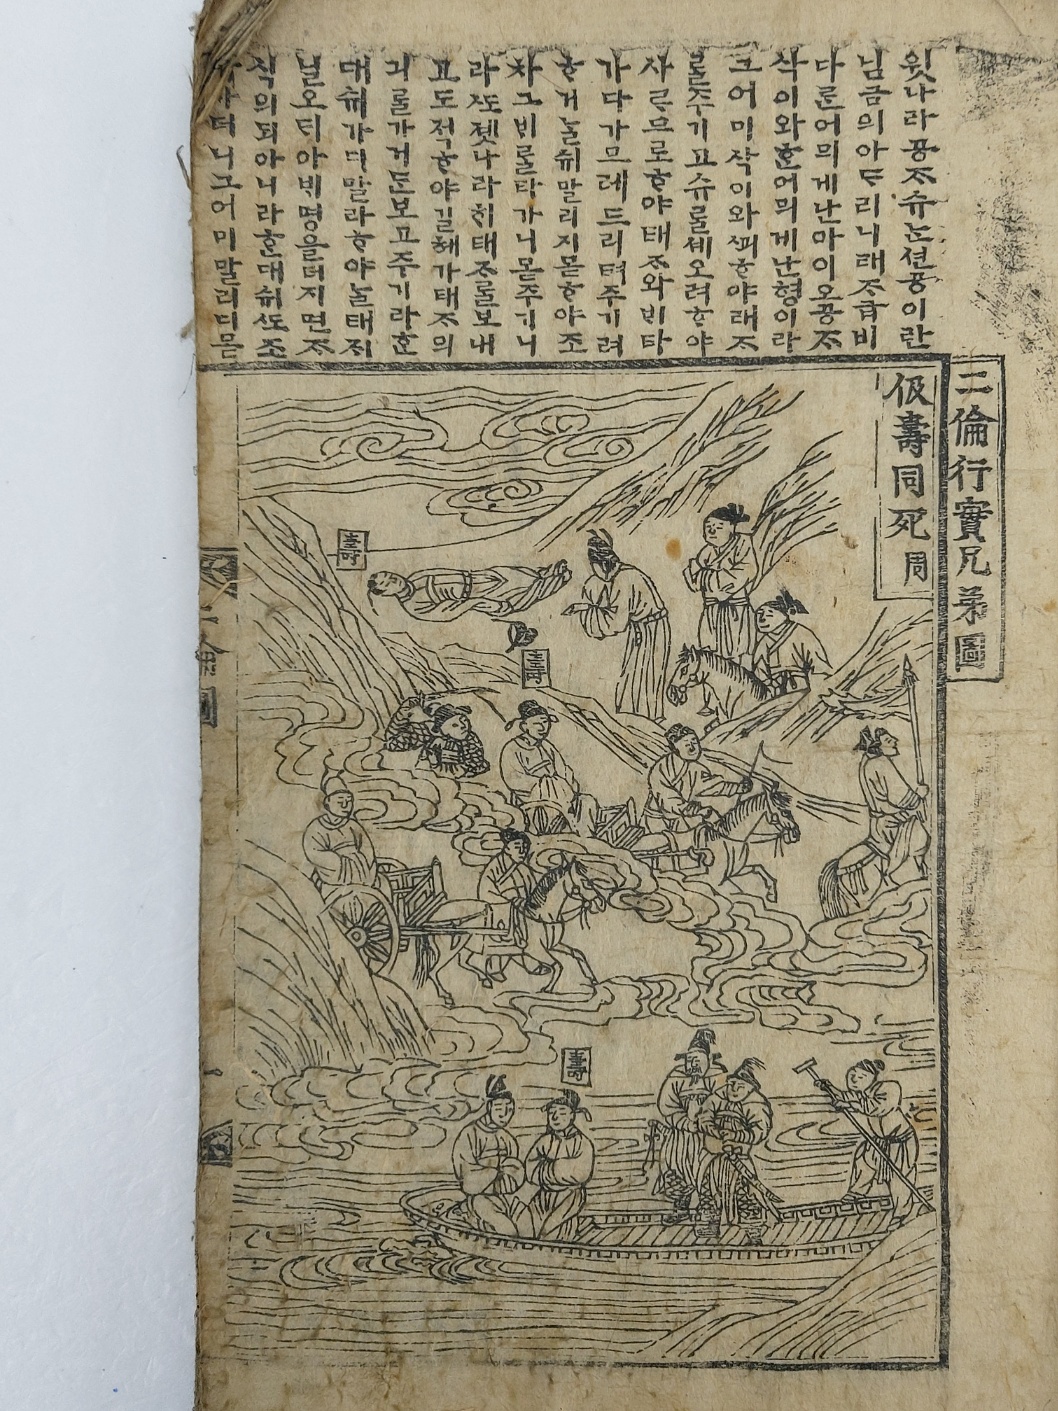 윗나라공ᄌᆞ슈ᄂᆞᆫ션공이란
님금의아ᄃᆞ리니태ᄌᆞ비
다ᄅᆞᆫ어믜게난아이오공ᄌᆞ
삭이와ᄒᆞᆫ어믜게난형이라
그어미삭이와ᄭᅬᄒᆞ야태ᄌᆞ
ᄅᆞᆯ주기고슈ᄅᆞᆯ셰오려ᄒᆞ야
사ᄅᆞ므로ᄒᆞ야태ᄌᆞ와ᄇᆡ타
가다가므레드리텨주기려
ᄒᆞ거ᄂᆞᆯ쉬말리지몯ᄒᆞ야조
차그ᄇᆡᄅᆞᆯ타가니몯주기니
라ᄯᅩ졧나라ᄒᆡ태ᄌᆞᄅᆞᆯ보내
고도적ᄒᆞ야길헤가태ᄌᆞ의
긔ᄅᆞᆯ가거든보고주기라ᄒᆞᆫ
대쉬가디말라ᄒᆞ야ᄂᆞᆯ태ᄌᆡ
닐오ᄃᆡ아ᄇᆡ명을더지면ᄌᆞ
식의되아니라ᄒᆞᆫ대쉬ᄯᅩ조
가더니그어미말리디몯
二倫行實兄弟圖
伋壽同死 周
壽
壽
壽